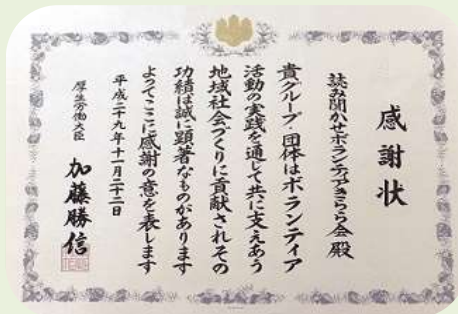 感謝状
読み聞かせボランティアきらら会殿
貴グループ・団体はボランティア
活動の実践を通じて共に支えあう
地域社会づくりに貢献されその
功績は誠に顕著なものがあります
よってここに感謝の意を表します
平成二十九年十一月二十二日
厚生労働大臣
加藤勝信